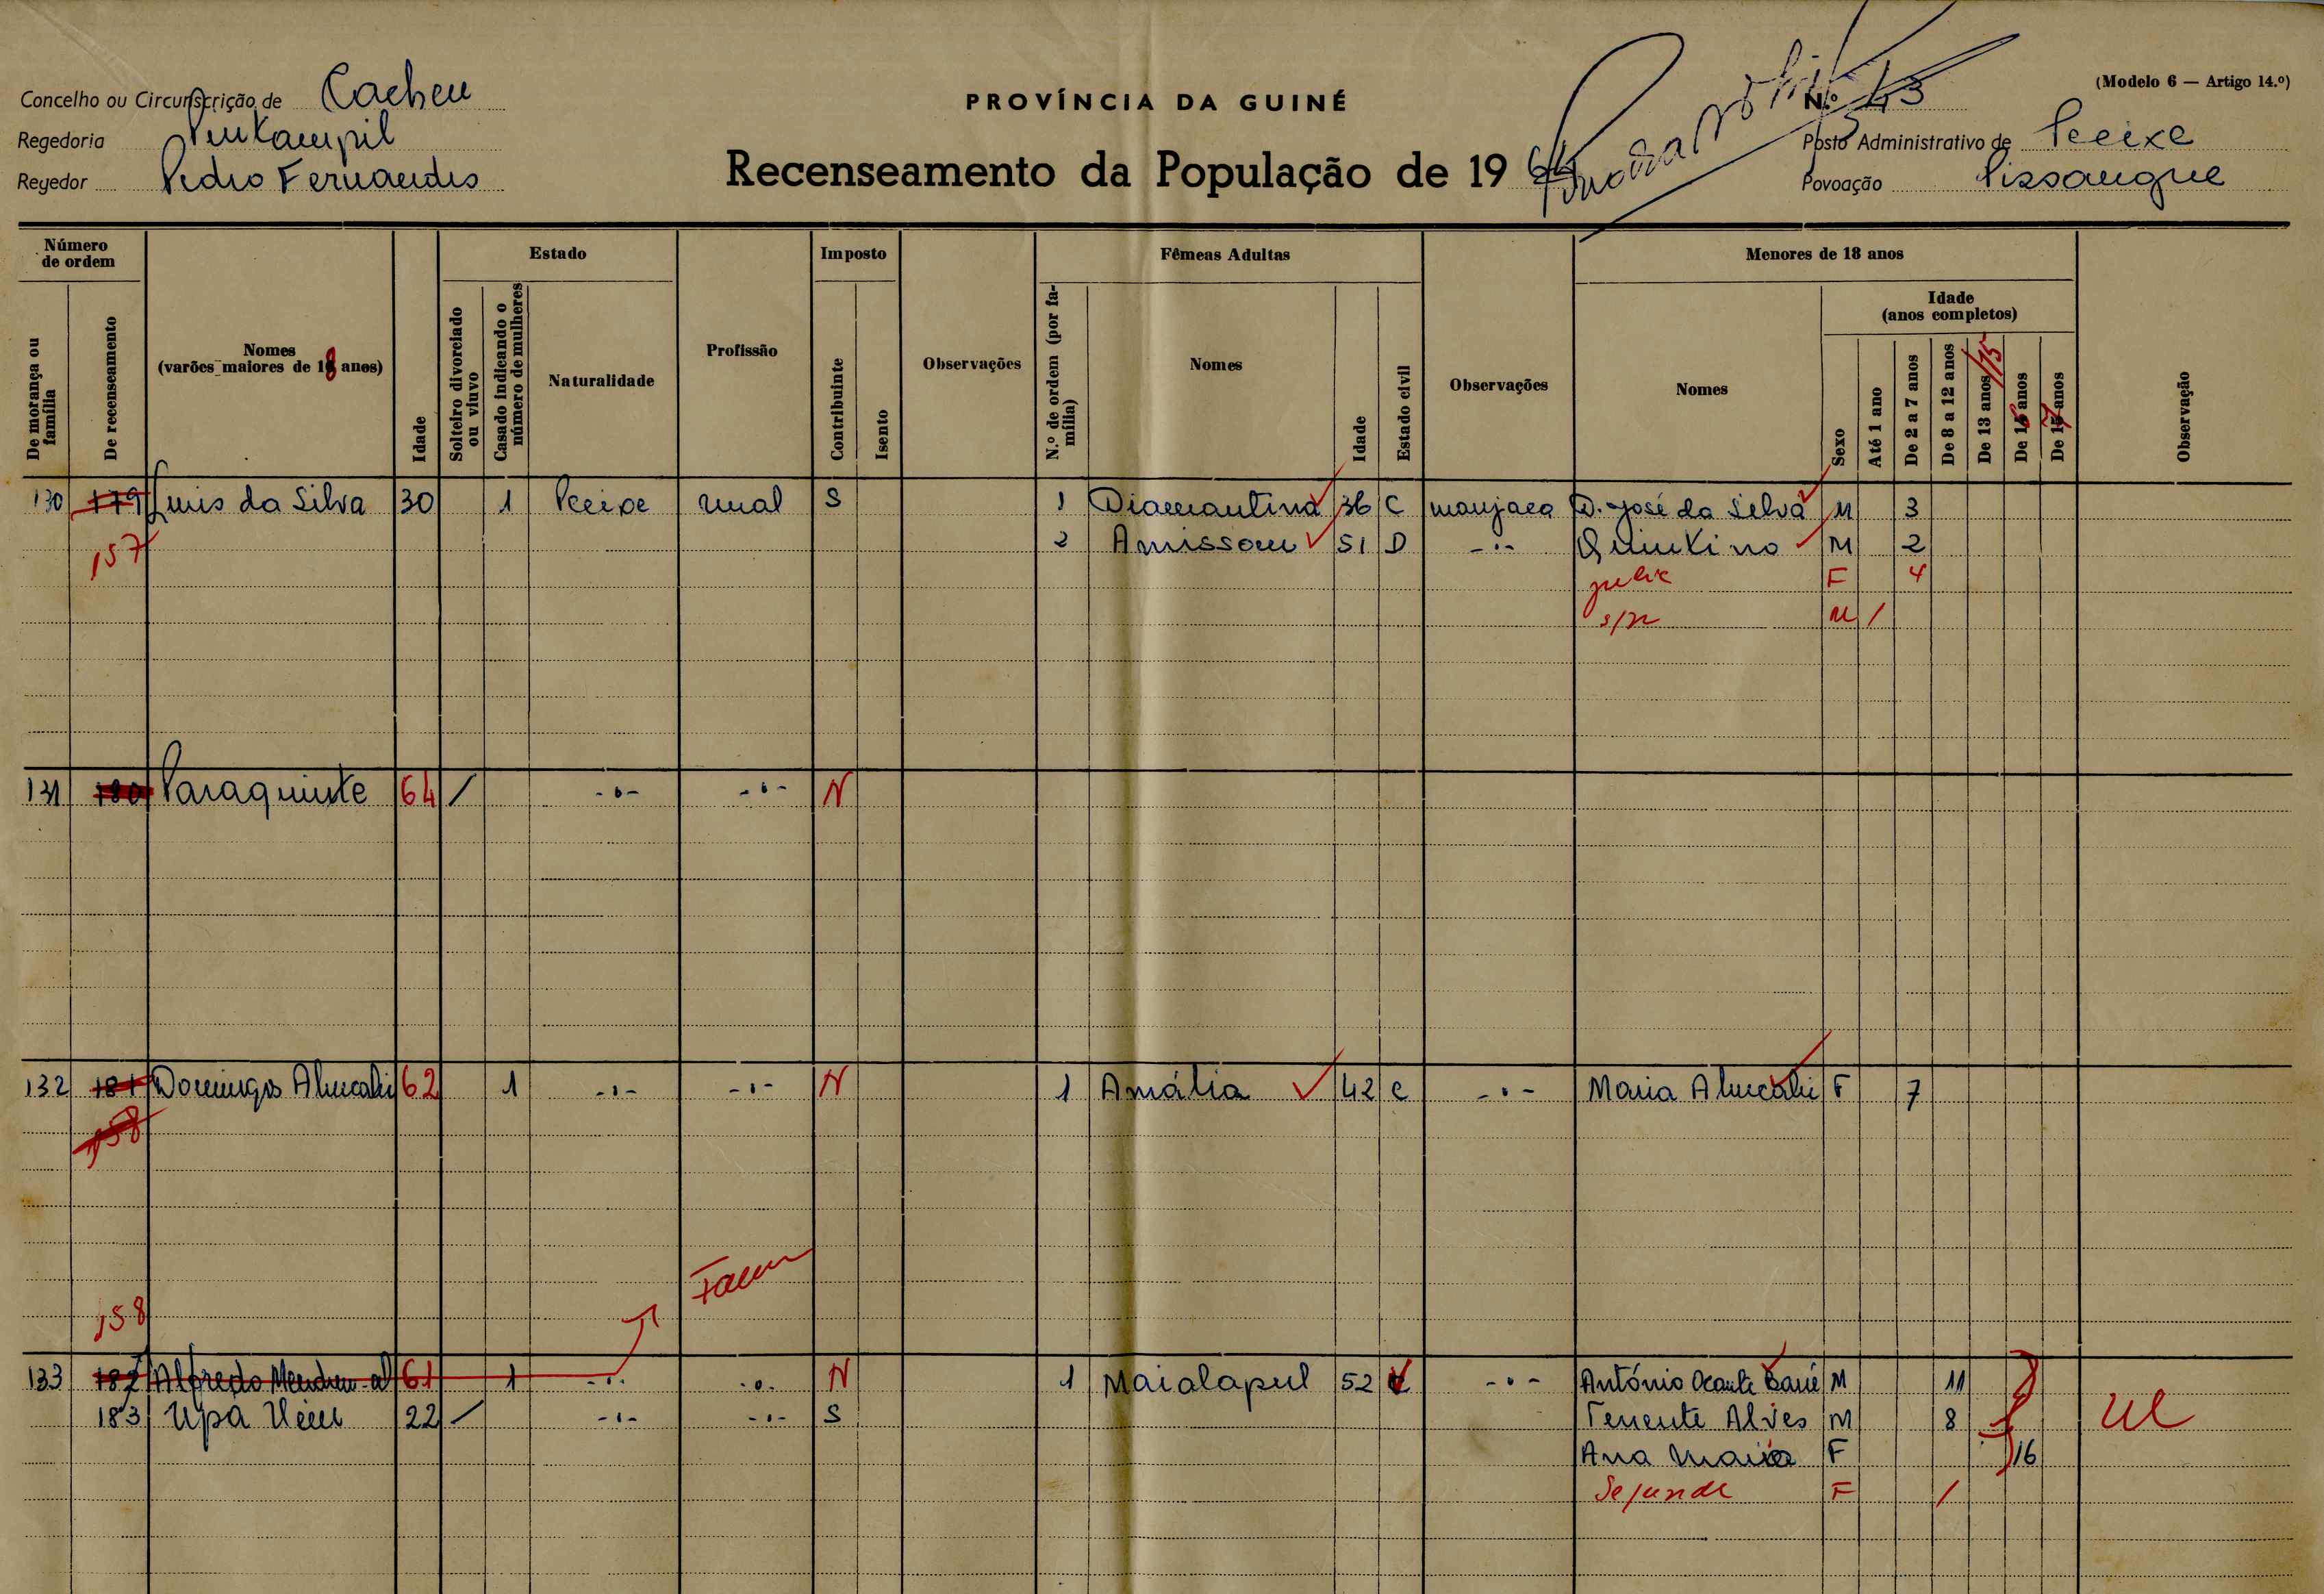 Concelho ou Circunscrição de Cacheu
Regedoria
Regedor Pedro Fernandes
PROVÍNCIA DA GUINÉ
Recenseamento da População de 19 64
(Modelo 6 — Artigo 14.º)
N.º 43
Posto Administrativo de
Povoação
Número de ordem
De morança ou família
De recenseamento
Nomes (varões maiores de 18 anos)
Idade
Estado
Solteiro divorciado ou viuvo
Casado indicando o número de mulheres
Naturalidade
Profissão
Imposto
Contribuinte
Isento
Observações
Fêmeas Adultas
N.º de ordem (por família)
Nomes
Idade
Estado civil
Observações
Menores de 18 anos
Nomes
Idade (anos completos)
Sexo
Até 1 ano
De 2 a 7 anos
De 8 a 12 anos
De 13 anos /15
De 16 anos
De 17 anos
Observação
130 179 Luis da Silva 30 1 rural S 1 Diamantina 36 C manjaca D. José da Silva M 3
157 2 Amissou 51 D -"- Quintino M 2
F 4
s/n M /
131 180 Paraquinte 64 / -"- -"- N
132 181 Domingos 62 1 -"- -"- N 1 Amália 42 C -"- Maria F 7
158
158
133 182 Alfredo 61 1 -"- -"- N 1 Maialapul 52 -"- António M 11
183 Upa 22 / -"- -"- S Tenente Alves M 8
Ana Maria F 16
Segunda F /